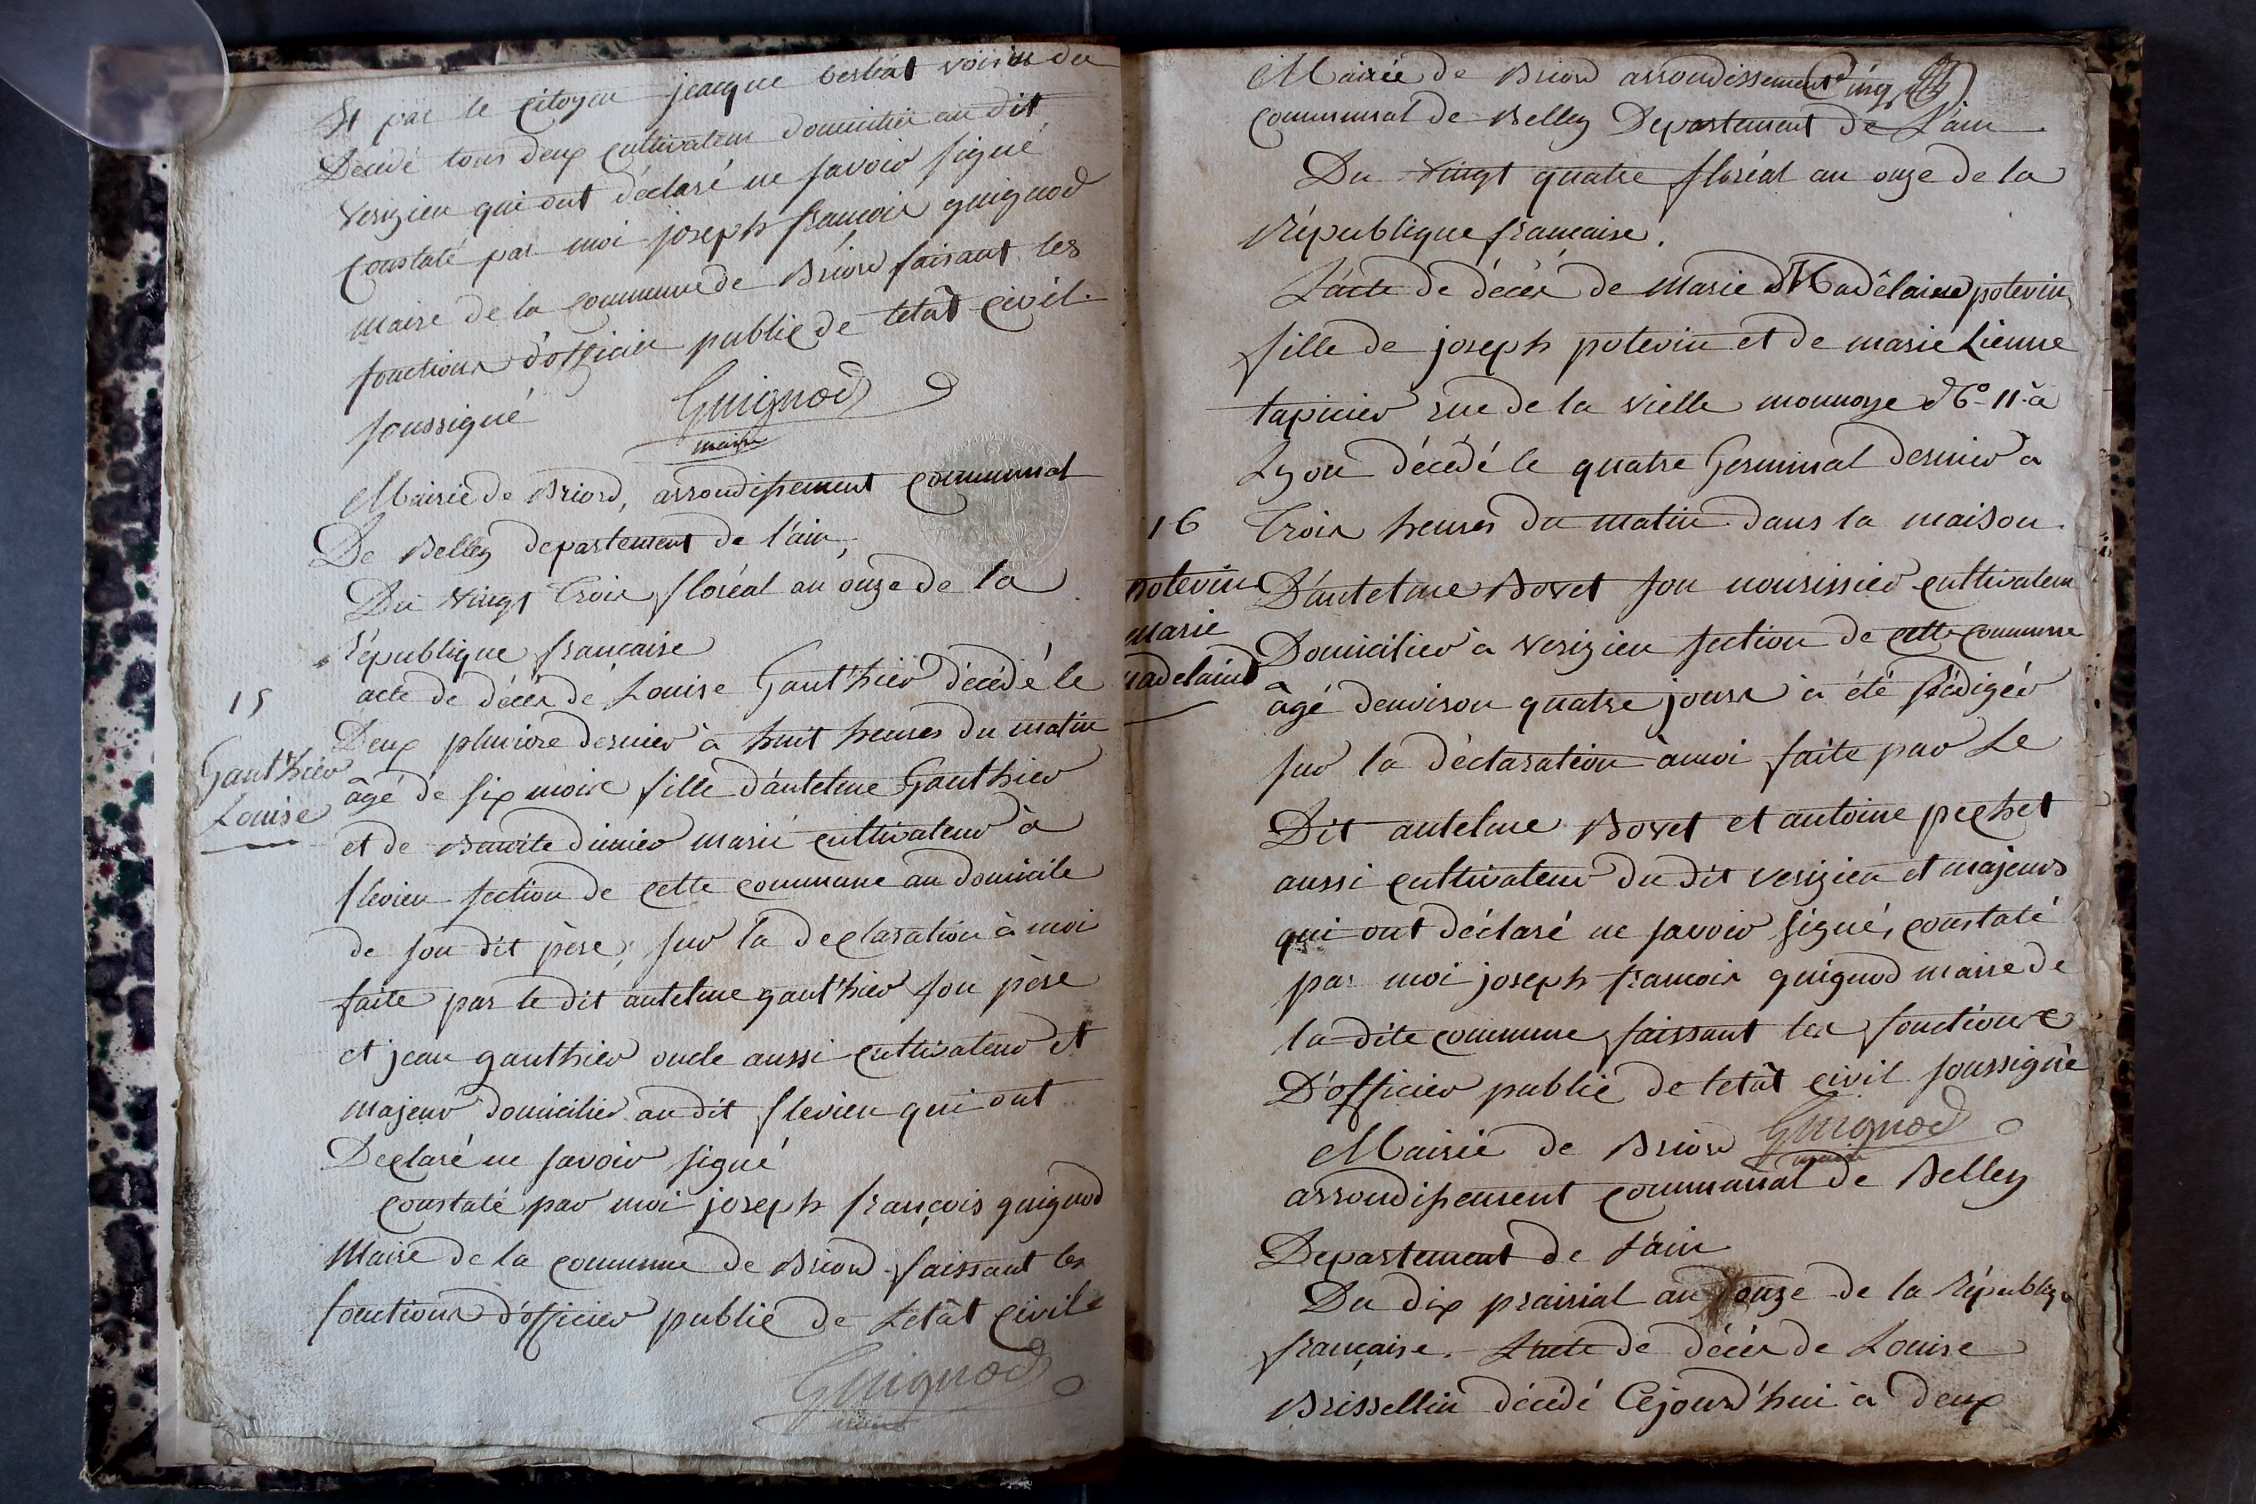 Et par le citoyen jacque berliat voisin du
Décédé tous deux cultivateur domicilié au dit
verizieu qui ont déclaré ne savoir signé
constaté par moi joseph francois guignod
maire de la commune de Briord faisant les
fonctions d'officier public de letât civil
soussigné Guignod
maire
Mairie de Briord, arrondissement communal
De Belley departement de l'ain,
Du vingt trois floréal an onze de la
république francaise
15
Gauthier
Louise
acte de décès de Louise Gauthier décédé le
Deux pluviose dernier à huit heures du matin
âgé de six mois fille d'antelme Gauthier
et de Benoite dimier marié cultivateur à
flevieu section de cette commune au domicile
de son dit père, sur la declaration à moi
faite par le dit antelme gauthier son père
et jean gauthier oncle aussi cultivateur et
majeur domicilié au dit flevieu qui ont
Declaré ne savoir signé
constaté par moi joseph françois guignod
Maire de la commune de Briord faissant les
fonctions d'officier public de Letât civil
Guignod
maire
Mairie de Briord arrondissement Cinq
communal de Belley Departement de L'ain
Du vingt quatre floréal an onze de la
république francaise.
L'acte de décès de Marie Madélaine potevin
fille de joseph potevin et de marie Lienne
tapicier rue de la vielle monnoye No 11 à
Lyon décédé le quatre Germinal dernier à
16
potevin
marie
madelaine
Trois heures du matin dans la maison
D'antelme Bovet son nourissier cultivateur
Domicilier à verizieu section de cette commune
âgé denviron quatre jours à été rédigée
sur la déclaration àmoi faite par Le
Dit antelme Bovet et antoine pechet
aussi cultivateur du dit verizieu et majeurs
qui ont déclaré ne savoir signé, constaté
par moi joseph francois guignod maire de
la dite commune faissant les fonctions
D'officier public de letât civil soussigné
Guignod
maire
Mairie de Briord
arrondissement communal de Belley
Departement de L'ain
Du dix prairial an onze de la républiq
française. L'acte de décès de Louise
Brissellin décédé Cejourd'hui à deux